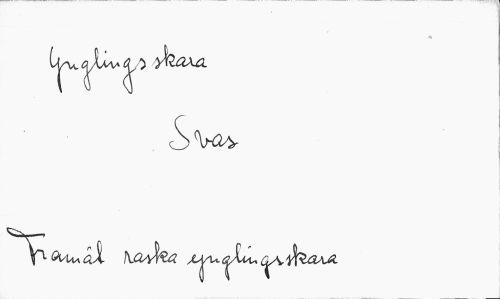 Ynglingsskara
Svas
Framåt raska ynglingsskara